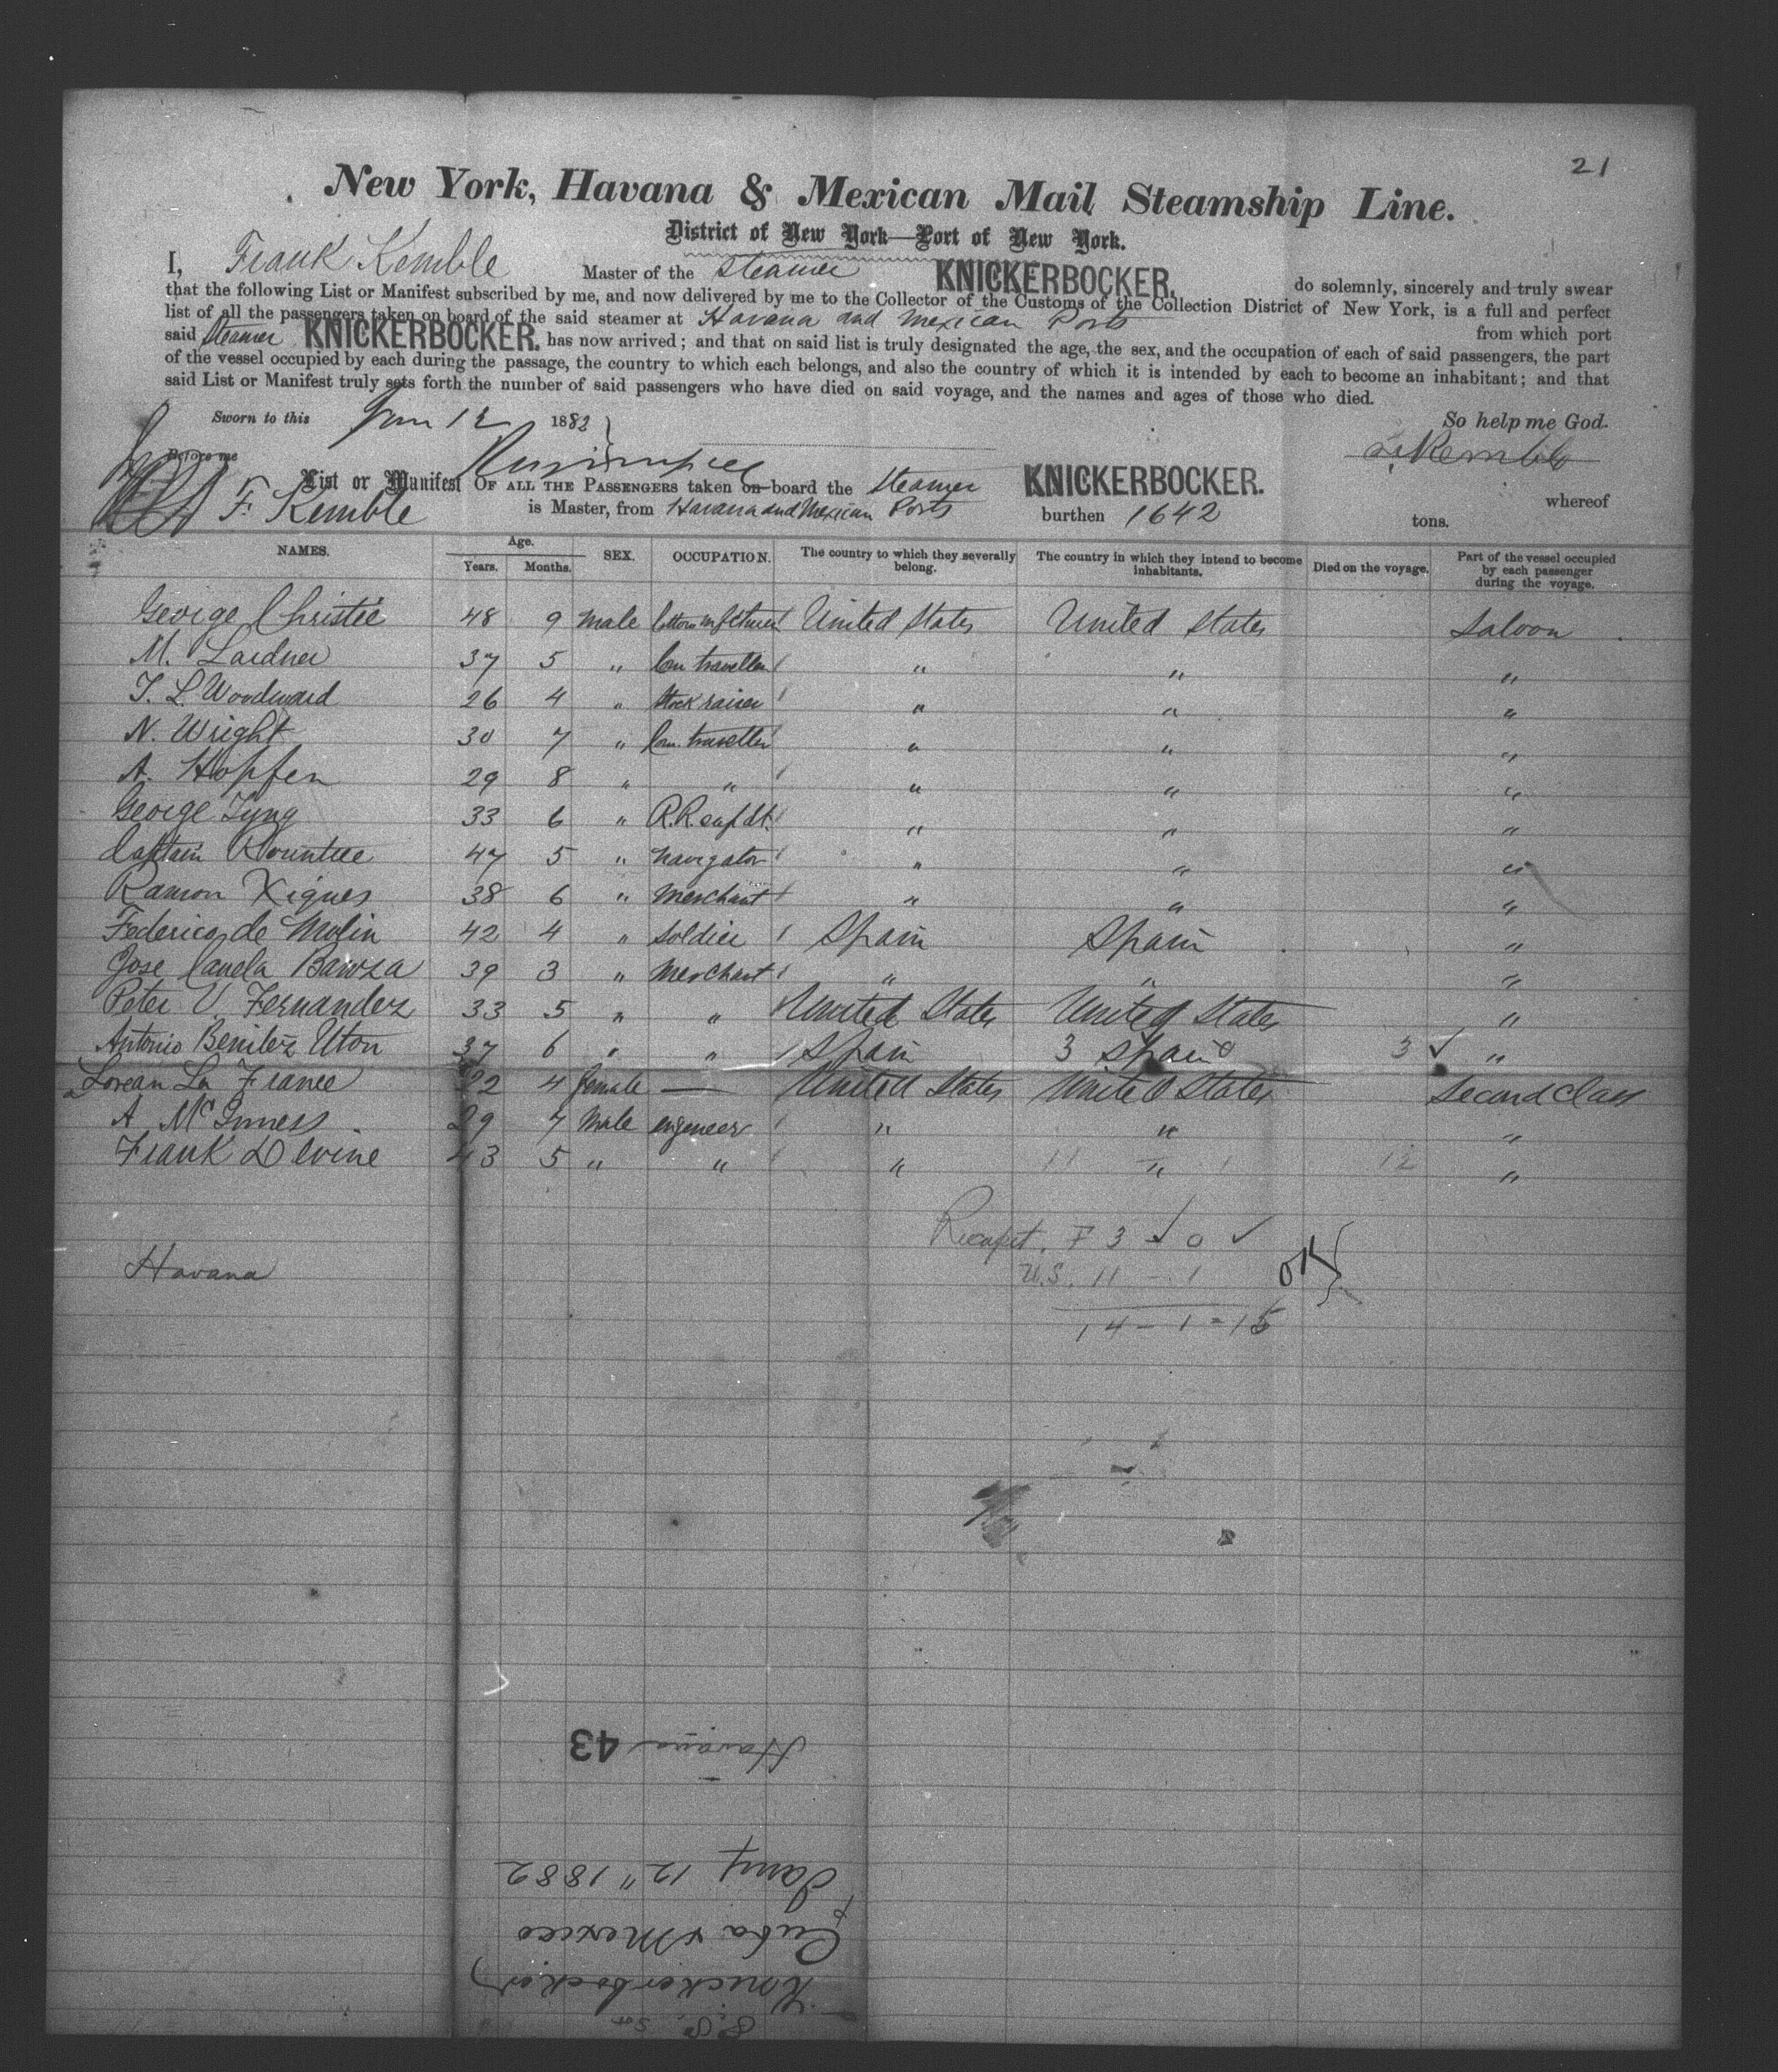 21
New York, Havana & Mexican Mail Steamship Line.
District of New York—Port of New York.
I, Frank Kemble Master of the Steamer KNICKERBOCKER. do solemnly, sincerely and truly swear
that the following List or Manifest subscribed by me, and now delivered by me to the Collector of the Customs of the Collection District of New York, is a full and perfect
list of all the passengers taken on board of the said steamer at Havana and Mexican Ports from which port
said Steamer KNICKERBOCKER. has now arrived; and that on said list is truly designated the age, the sex, and the occupation of each of said passengers, the part
of the vessel occupied by each during the passage, the country to which each belongs, and also the country of which it is intended by each to become an inhabitant; and that
said List or Manifest truly sets forth the number of said passengers who have died on said voyage, and the names and ages of those who died.
Sworn to this Jan 12 1882 So help me God.
Before me F. Kemble
List or Manifest OF ALL THE PASSENGERS taken on board the Steamer KNICKERBOCKER. whereof
F. Kemble is Master, from Havana and Mexican Ports burthen 1642 tons.
NAMES. Age. Years. Months. SEX. OCCUPATION. The country to which they severally belong. The country in which they intend to become inhabitants. Died on the voyage. Part of the vessel occupied by each passenger during the voyage.
George Christie 48 9 Male United States United States Saloon
M. Lardner 37 5 " Com traveller " " "
T. L. Woodward 26 4 " Stock raiser " " "
N. Wright 30 7 " Com. traveller " " "
A. Hopfen 29 8 " " " " "
George Tyng 33 6 " R.R. supdt. " " "
Captain Rountree 47 5 " Navigator " " "
Ramon Xiques 38 6 " Merchant " " "
Federico de Molin 42 4 " Soldier Spain Spain "
Jose Canela 39 3 " Merchant " " "
Peter V. Fernandez 33 5 " " United States United States "
Antonio Benitez Uton 37 6 " " Spain 3 Spain 0 3 ✓ "
Lorean La France 22 4 female — United States United States Second Class
A McGinness 29 7 Male engeneer " " "
Frank Devine 43 5 " " " 11 " 1 12 "
Recapit. F 3 ✓ 0 ✓
Havana U.S. 11 - 1 OK
14 - 1 = 15
Havana 43
Jany 12" 1882
Cuba & Mexico
Knickerbocker
S.S.